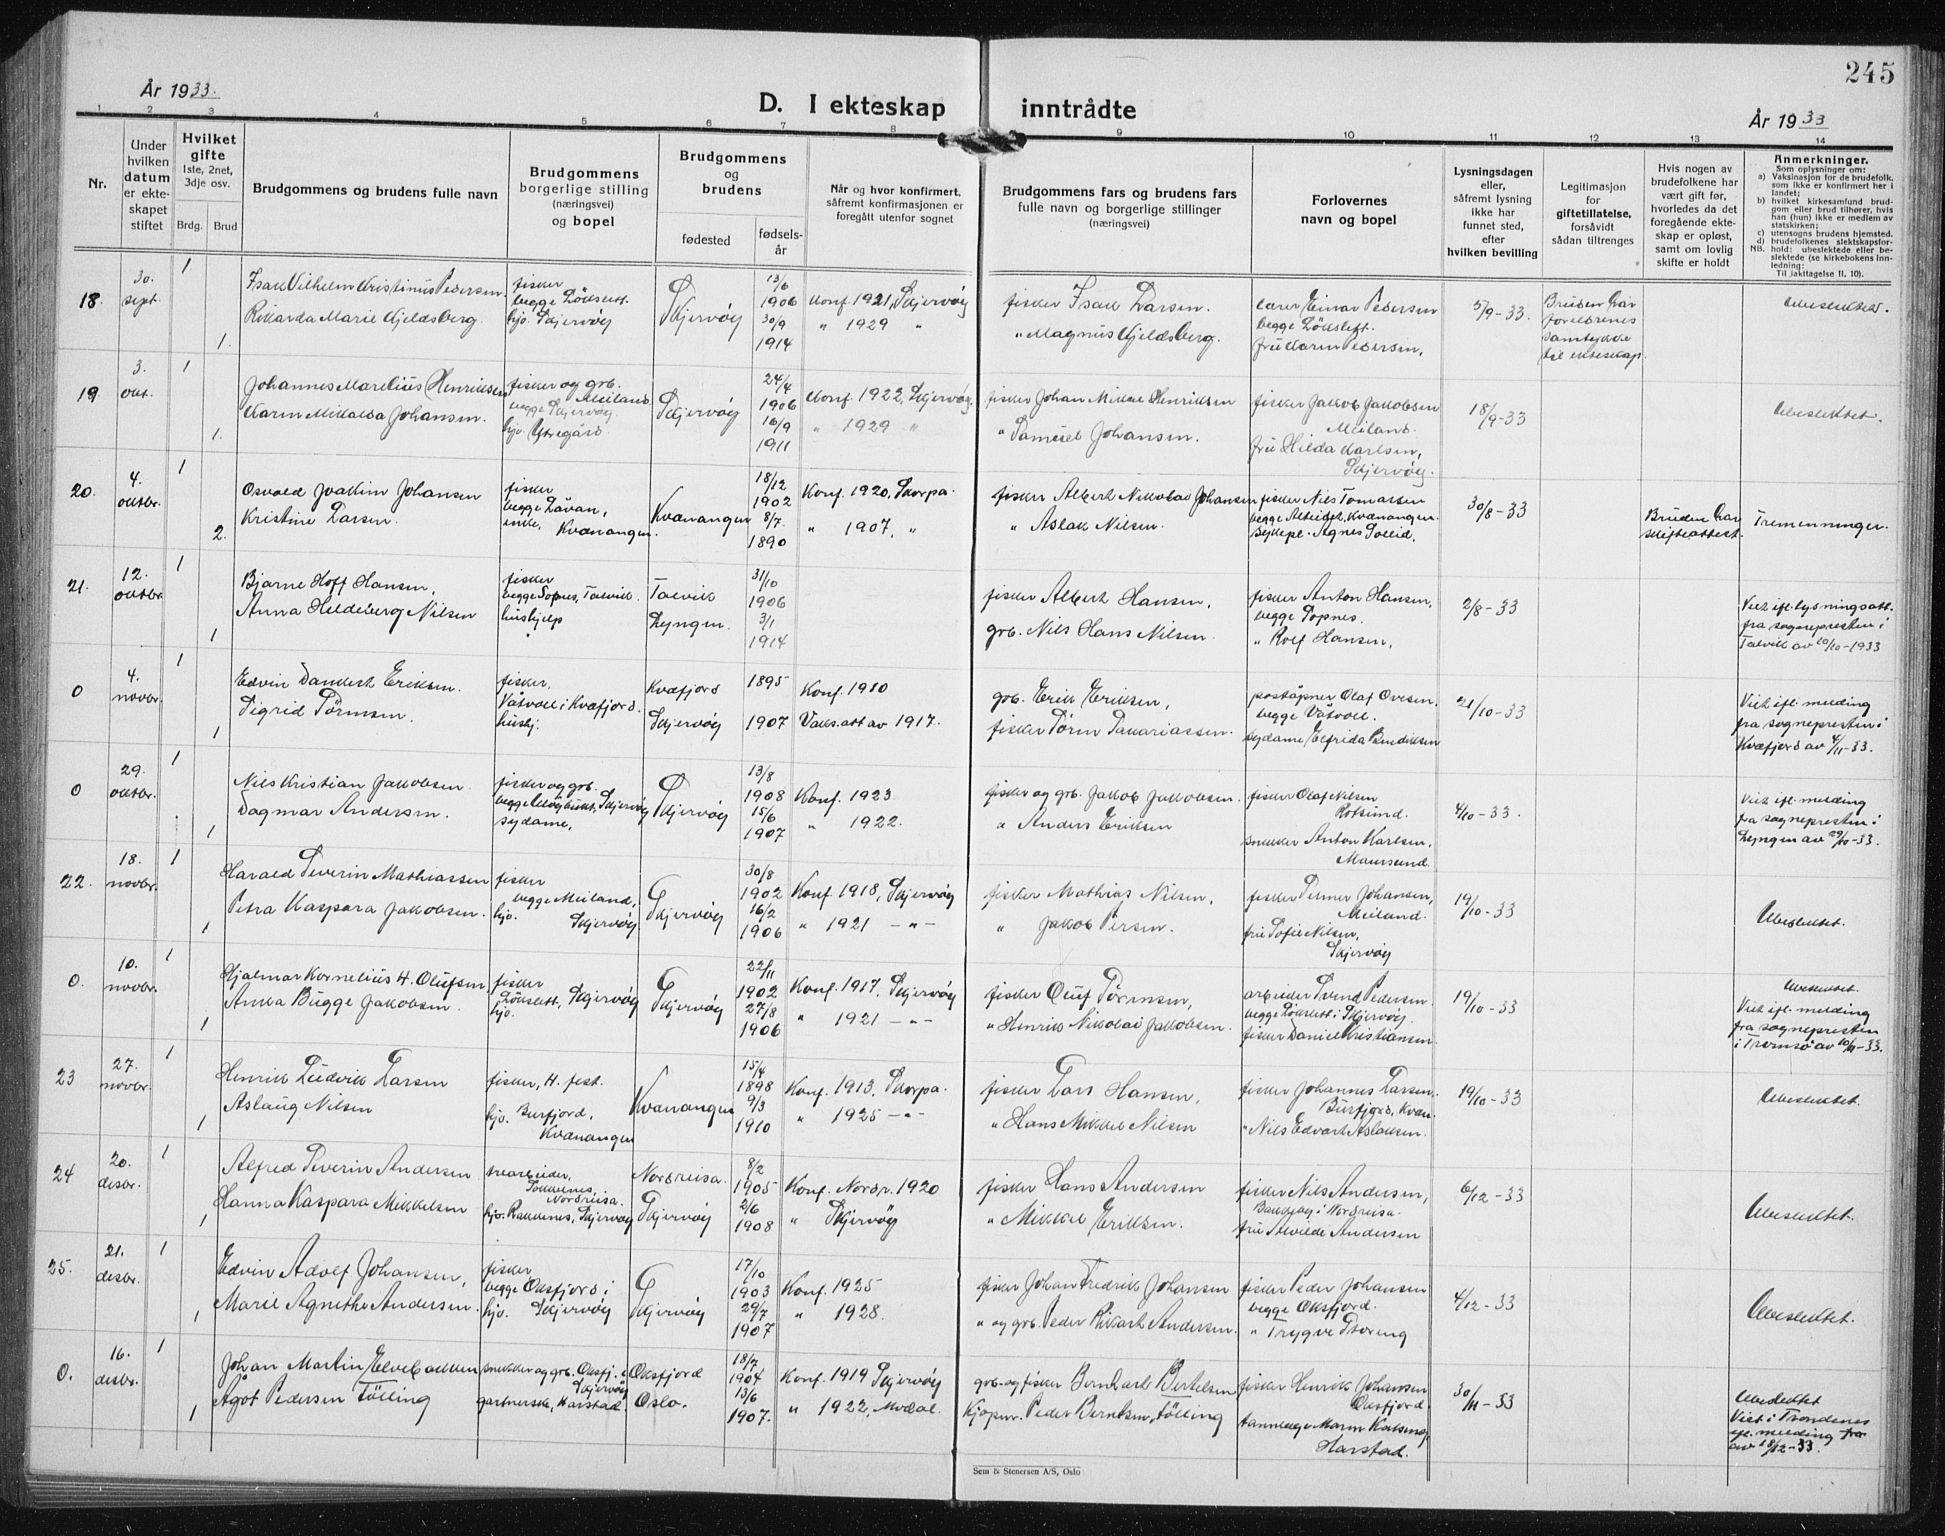 245
År 1933.
D. I ekteskap inntrådte
År 1933
1 2 3 4 5 6 7 8 9 10 11 12 13 14
Nr.
Under hvilken datum er ekte-skapet stiftet
Hvilket gifte
Iste, 2net, 3dje osv.
Brdg. Brud
Brudgommens og brudens fulle navn
Brudgommens borgerlige stilling (næringsvei) og bopel
Brudgommens og brudens
fødested
fødsels-år
Når og hvor konfirmert, såfremt konfirmasjonen er foregått utenfor sognet
Brudgommens fars og brudens fars fulle navn og borgerlige stillinger (næringsvei)
Forlovernes navn og bopel
Lysningsdagen eller, såfremt lysning ikke har funnet sted, efter hvilken bevilling
Legitimasjon for giftetillatelse, forsåvidt sådan tiltrenges
Hvis nogen av brudefolkene har vært gift før, hvorledes da det foregående ekte-skap er opløst, samt om lovlig skifte er holdt
Anmerkninger.
Som oplysninger om:
a) Vaksinasjon for de brudefolk, som ikke er konfirmert her i landet;
b) hvilket kirkesamfund brud-gom eller brud tilhører, hvis han (hun) ikke er medlem av statskirken;
c) utensogns brudens hjemsted.
d) brudefolkenes slektskapsfor-hold: ubeslektede eller be-slektede (se kirkebokens Inn-ledning: Til Jakttagelse II, 10).
NB.
18. 30. sept. 1 1.
Isak Vilhelm Kristinus Pedersen.
Rikkarda Marie Kjeldsberg.
fisker
begge Lökslett.
hjv. Skjervöy
Skjervöy
13/6 1906
30/9 1914
Konf. 1921, Skjervöy
" 1929 "
fisker Isak Larsen.
" Magnus Kjeldsberg.
lærer Einar Pedersen
begge Lökslett.
fru Karin Pedersen,
5/9-33.
Bruden har foreldrenes samtykke til ekteskap.
Ubeslektet.
19. 3. okt. 1 1.
Johannes Marelius Henriksen
Karin Mikalda Johansen.
fisker og grb.
Meiland
begge Skjervöy.
hjv. Ytregård.
Skjervöy
24/4 1906
16/9 1911
Konf. 1922, Skjervöy.
" 1929 "
fisker Johan Mikal Henriksen
" Samuel Johansen.
fisker Jakob Jakobsen
Meiland.
fru Hilda Karlsen,
Skjervöy.
18/9-33
Ubeslektet.
20. 4. oktbr. 1 2.
Osvald Joakim Johansen
Kristine Larsen.
fisker
begge Låvan,
enke, Kvænangen.
Kvænangen
18/12 1902
8/7. 1890
Konf. 1920, Skorpa.
" 1907, "
fisker Albert Nikolai Johansen
" Aslak Nilsen.
fisker Nils Tomassen
begge Alteidet, Kvænangen.
sykepl. Agnes Solleid.
30/8-33
Bruden har skifteattest.
Tremenninger.
21. 12. oktbr. 1 1
Bjarne Hoff Hansen,
Anna Heldeberg Nilsen
fisker
begge Sopnes, Talvik.
hushjelp
Talvik
Lyngen.
31/10 1906
3/1 1914
fisker Albert Hansen,
grb. Nils Hans Nilsen.
fisker Anton Hansen,
begge Sopnes.
" Rolf Hansen,
2/8-33
Viet ifl. lysningsatt. fra sognepresten i Talvik av 10/10-1933
0 4. novbr. 1 1
Edvin Dankert Eriksen.
Sigrid Törmsen.
fisker,
Våtvoll i Kvæfjord.
hushj.
Kvæfjord
Skjervöy
1895
1907
Konf. 1910
Vaks.att av 1917.
grb. Erik Eriksen,
fisker Törm Sakariassen.
poståpner Olaf Ovesen,
begge Våtvoll.
sydame Elfrida Bendiksen
21/10-33
Viet ifl. melding fra sognepresten i Kvæfjord av 4/11-33.
0 29. oktbr. 1 1
Nils Kristian Jakobsen.
Dagmar Andersen.
fisker og grb.
sydame,
Skjervöy
13/8 1908
15/6 1907
Konf. 1923.
" 1922.
fisker og grb. Jakob Jakobsen.
" Anders Eriksen
fisker Olaf Nilsen
Rotsund.
snekker Anton Karlsen,
Maursund.
4/10-33.
Viet ifl. melding fra sognepresten i Lyngen av 29/10-33.
22. 18. novbr. 1 1
Harald Severin Mathiassen
Petra Kaspara Jakobsen.
fisker
begge Meiland,
hjv. Skjervöy.
Skjervöy
30/8 1902
16/2 1906
Konf. 1918, Skjervöy
" 1921 -"-
fisker Mathias Nilsen,
" Jakob Persen.
fisker Peimer Johansen,
Meiland.
fru Sofie Nilsen,
Skjervöy
19/10-33
Ubeslektet.
0. 10. novbr. 1 1
Hjalmar Kornelius H. Olufsen.
Anna Bugge Jakobsen.
fisker
Lökslett, Skjervöy
hjv.
Skjervöy
22/11 1902
27/8 1906
Konf. 1917, Skjervöy
" 1921 -"-
fisker Oluf Törmsen,
" Henrik Nikolai Jakobsen.
arbeider Svend Pedersen
begge Lökslett i Skjervöy.
fisker Daniel Kristiansen
19/10-33
Ubeslektet.
Viet ifl. melding fra sognepresten i Tromsö av 10/11-33.
23 27. novbr. 1 1
Henrik Ludvik Larsen
Aslaug Nilsen
fisker, H. fest.
hjv. Burfjord,
Kvænangen
Kvænangen
15/4 1898
9/3 1910
Konf. 1913, Skorpa.
" 1925 -"-
fisker Lars Hansen,
" Hans Mikkel Nilsen
fisker Johannes Larsen
Burfjord, Kvæn.
" Nils Edvart Aslaksen.
19/10-33
Ubeslektet.
24 20. desbr. 1 1
Alfred Severin Andersen
Hanna Kaspara Mikkelsen
Sokkenes,
Nordreisa.
hjv. Rakkenes, Skjervöy
Nordreisa.
Skjervöy
8/2 1905
2/6 1908
Konf. Nordr. 1920
" Skjervöy
fisker Hans Andersen
" Mikkel Eriksen.
fisker Nils Andersen,
Bakkeby i Nordreisa.
fru Alvilde Andersen
6/12-33
Ubeslektet.
25. 21. desbr. 1 1
Edvin Adolf Johansen,
Marie Agnethe Andersen.
fisker
begge Oksfjord i
hjv. Skjervöy
Skjervöy
17/10 1903
29/7 1907
Konf. 1925
" 1928.
fisker Johan Fredrik Johansen
" og grb. Peder Rikart Andersen.
fisker Peder Johansen
begge Oksfjord.
" Trygve Storeng
4/12-33
Ubeslektet.
0. 16. desbr. 1 1
Johan Martin Elvebakken
Ågot Pedersen Tölling
snekker og grb. Oksfj. i
Skjervöy
gartnerske, Harstad.
Oksfjord
Oslo.
18/7 1904
13/6 1907.
Konf. 1919 Skjervöy
" 1922,
grb. og fisker Bernhart Bertelsen
Kjöpm. Peder Berntsen Tölling
fisker Henrik Johansen
Oksfjord.
Harstad.
30/11-33
Ubeslektet
Viet i Trondenes ifl. melding fra av 18/12-33.
Sem & Stenersen A/S, Oslo